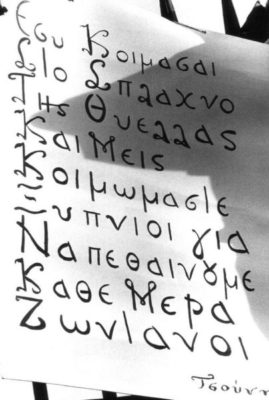 Εσυ Κοιμασαι
Στο Σπλαχνο
Της Θυελλας
Και Μεις
Κοιμωμαστε
Ξυπνιοι για
Να Πεθαινουμε
Καθε Μερα
Ζωντανοι